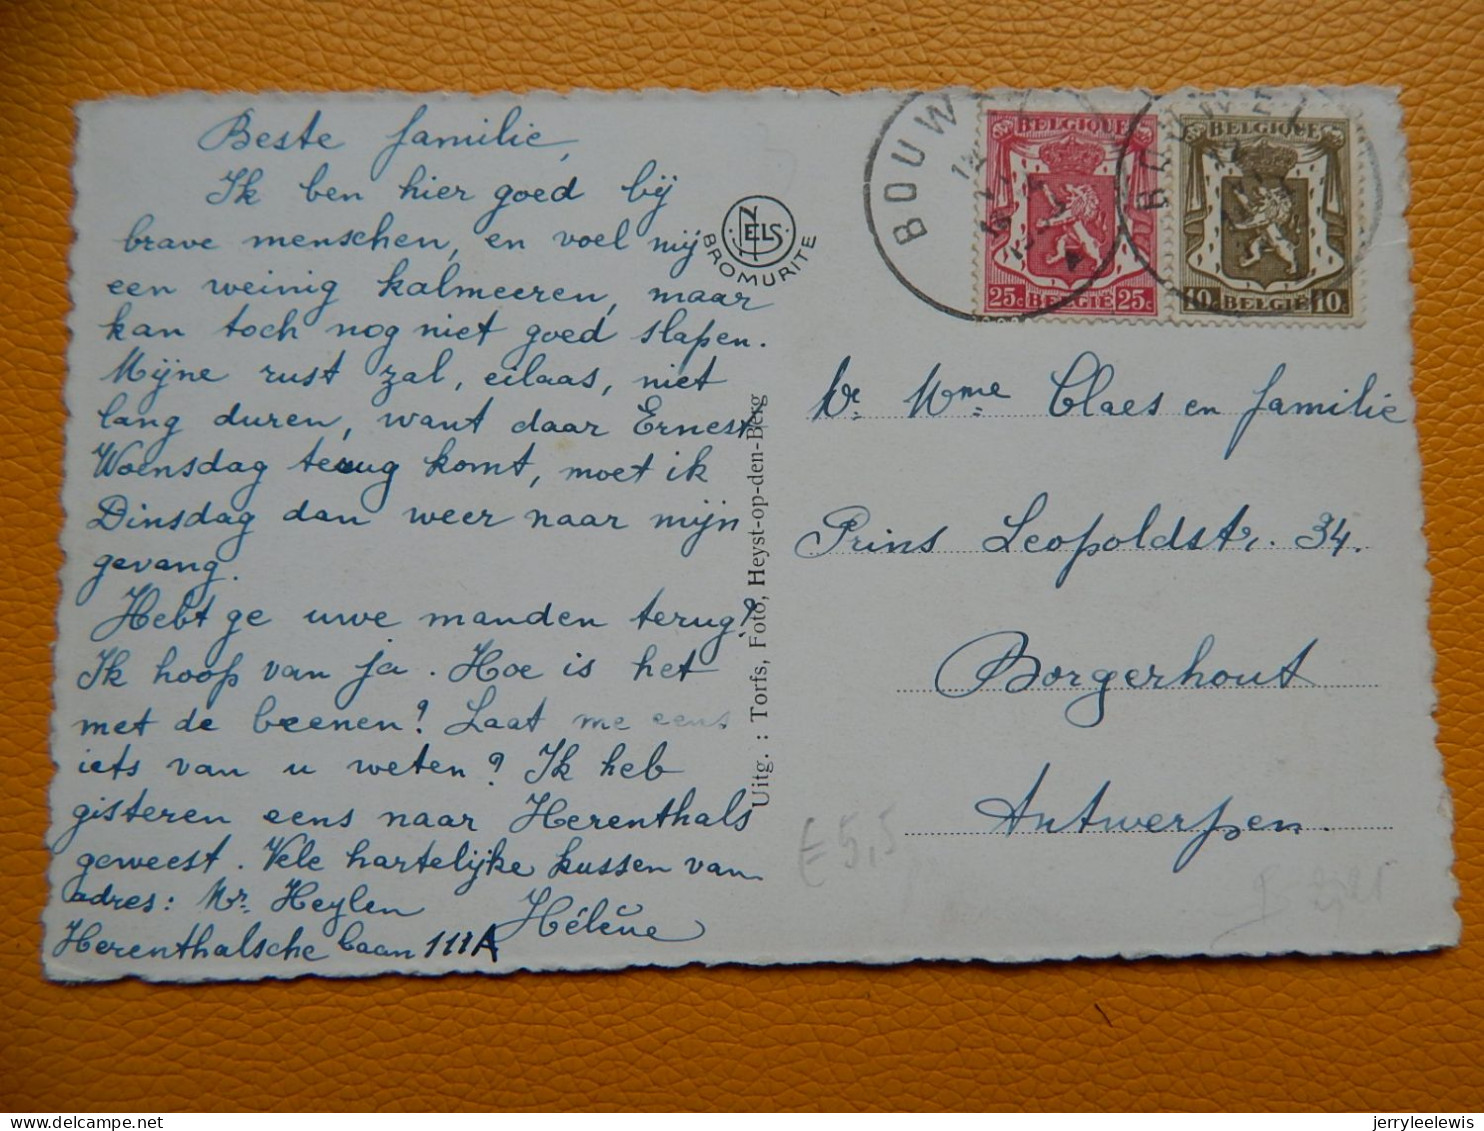 Beste familie,
Ik ben hier goed bij
brave menschen, en voel mij
een weinig kalmeeren, maar
kan toch nog niet goed slapen.
Mijne rust zal, eilaas, niet
lang duren, want daar Ernest
Woensdag terug komt, moet ik
Dinsdag dan weer naar mijn
gevang.
Hebt ge uwe manden terug?
Ik hoop van ja. Hoe is het
met de beenen? Laat me eens
iets van u weten? Ik heb
gisteren eens naar Herenthals
geweest. Vele hartelijke kussen van
adres: Mr. Heylen Hélène
Herenthalsche baan 111A
NELS
BROMURITE
Uitg.: Torfs, Foto, Heyst-op-den-Berg
BOUWEL
BELGIQUE
25c BELGIË 25c
BOUWEL
BELGIQUE
10c BELGIË 10c
Mr. Mme. Claes en familie
Prins Leopoldstr. 34.
Borgerhout
Antwerpen.
€5,5
jerryleelewis